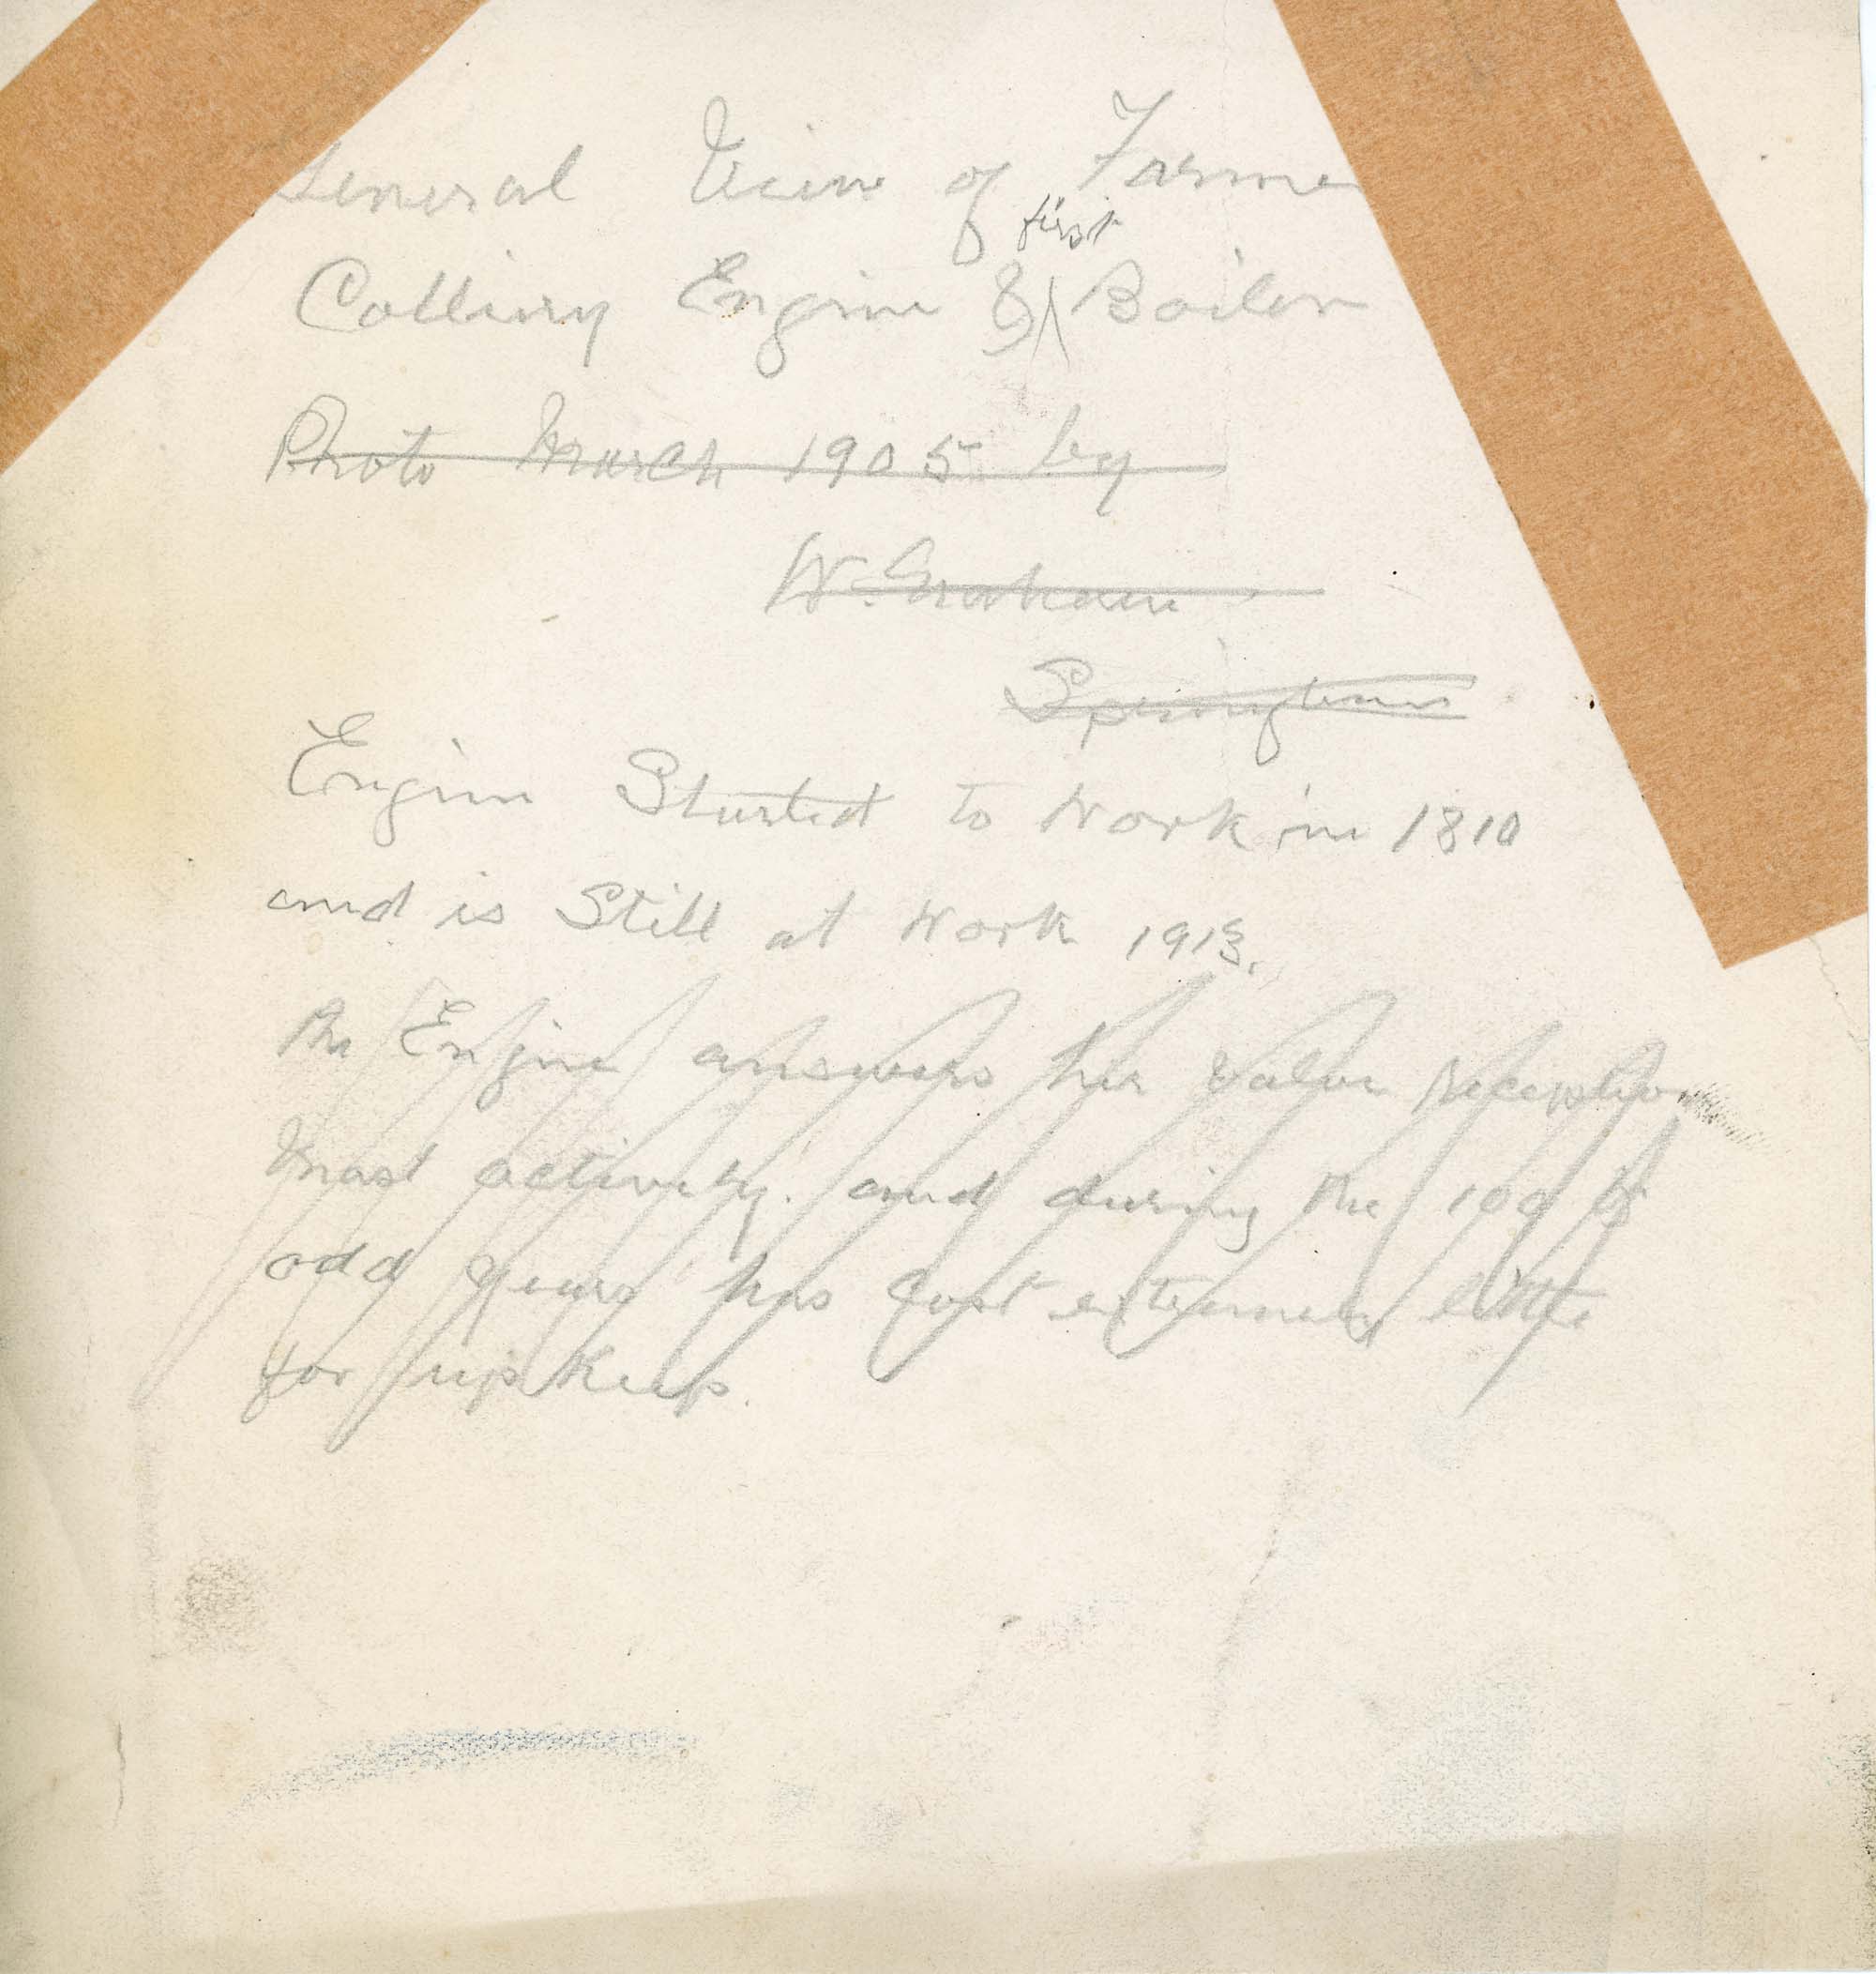 General View of Farme
first
Colliery Engine & Boiler
Photo March 1905 by
W. Graham
Engine Started to Work in 1810
and is Still at Work 1913.
The Engine answers her Valve
most activity. and during the 100
odd years has Cost extremely little
for up Keep.